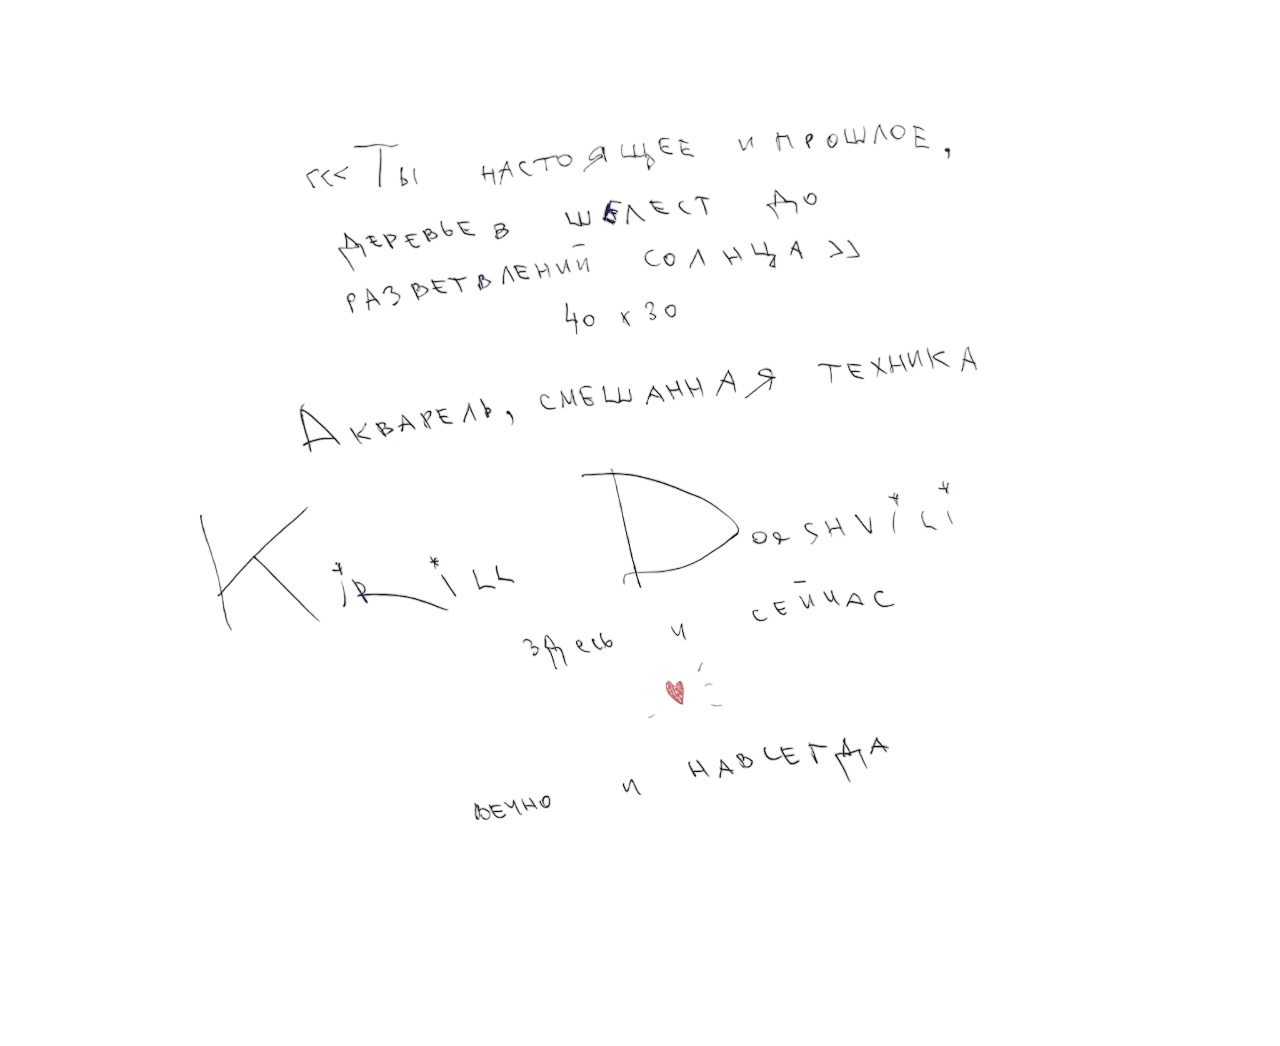 <<< Ты настоящее и прошлое,
деревьев шелест до
разветвлений солнца >>
40 x 30
Акварель, смешанная техника
KiRiLL DorSHViLi
здесь и сейчас
вечно и навсегда